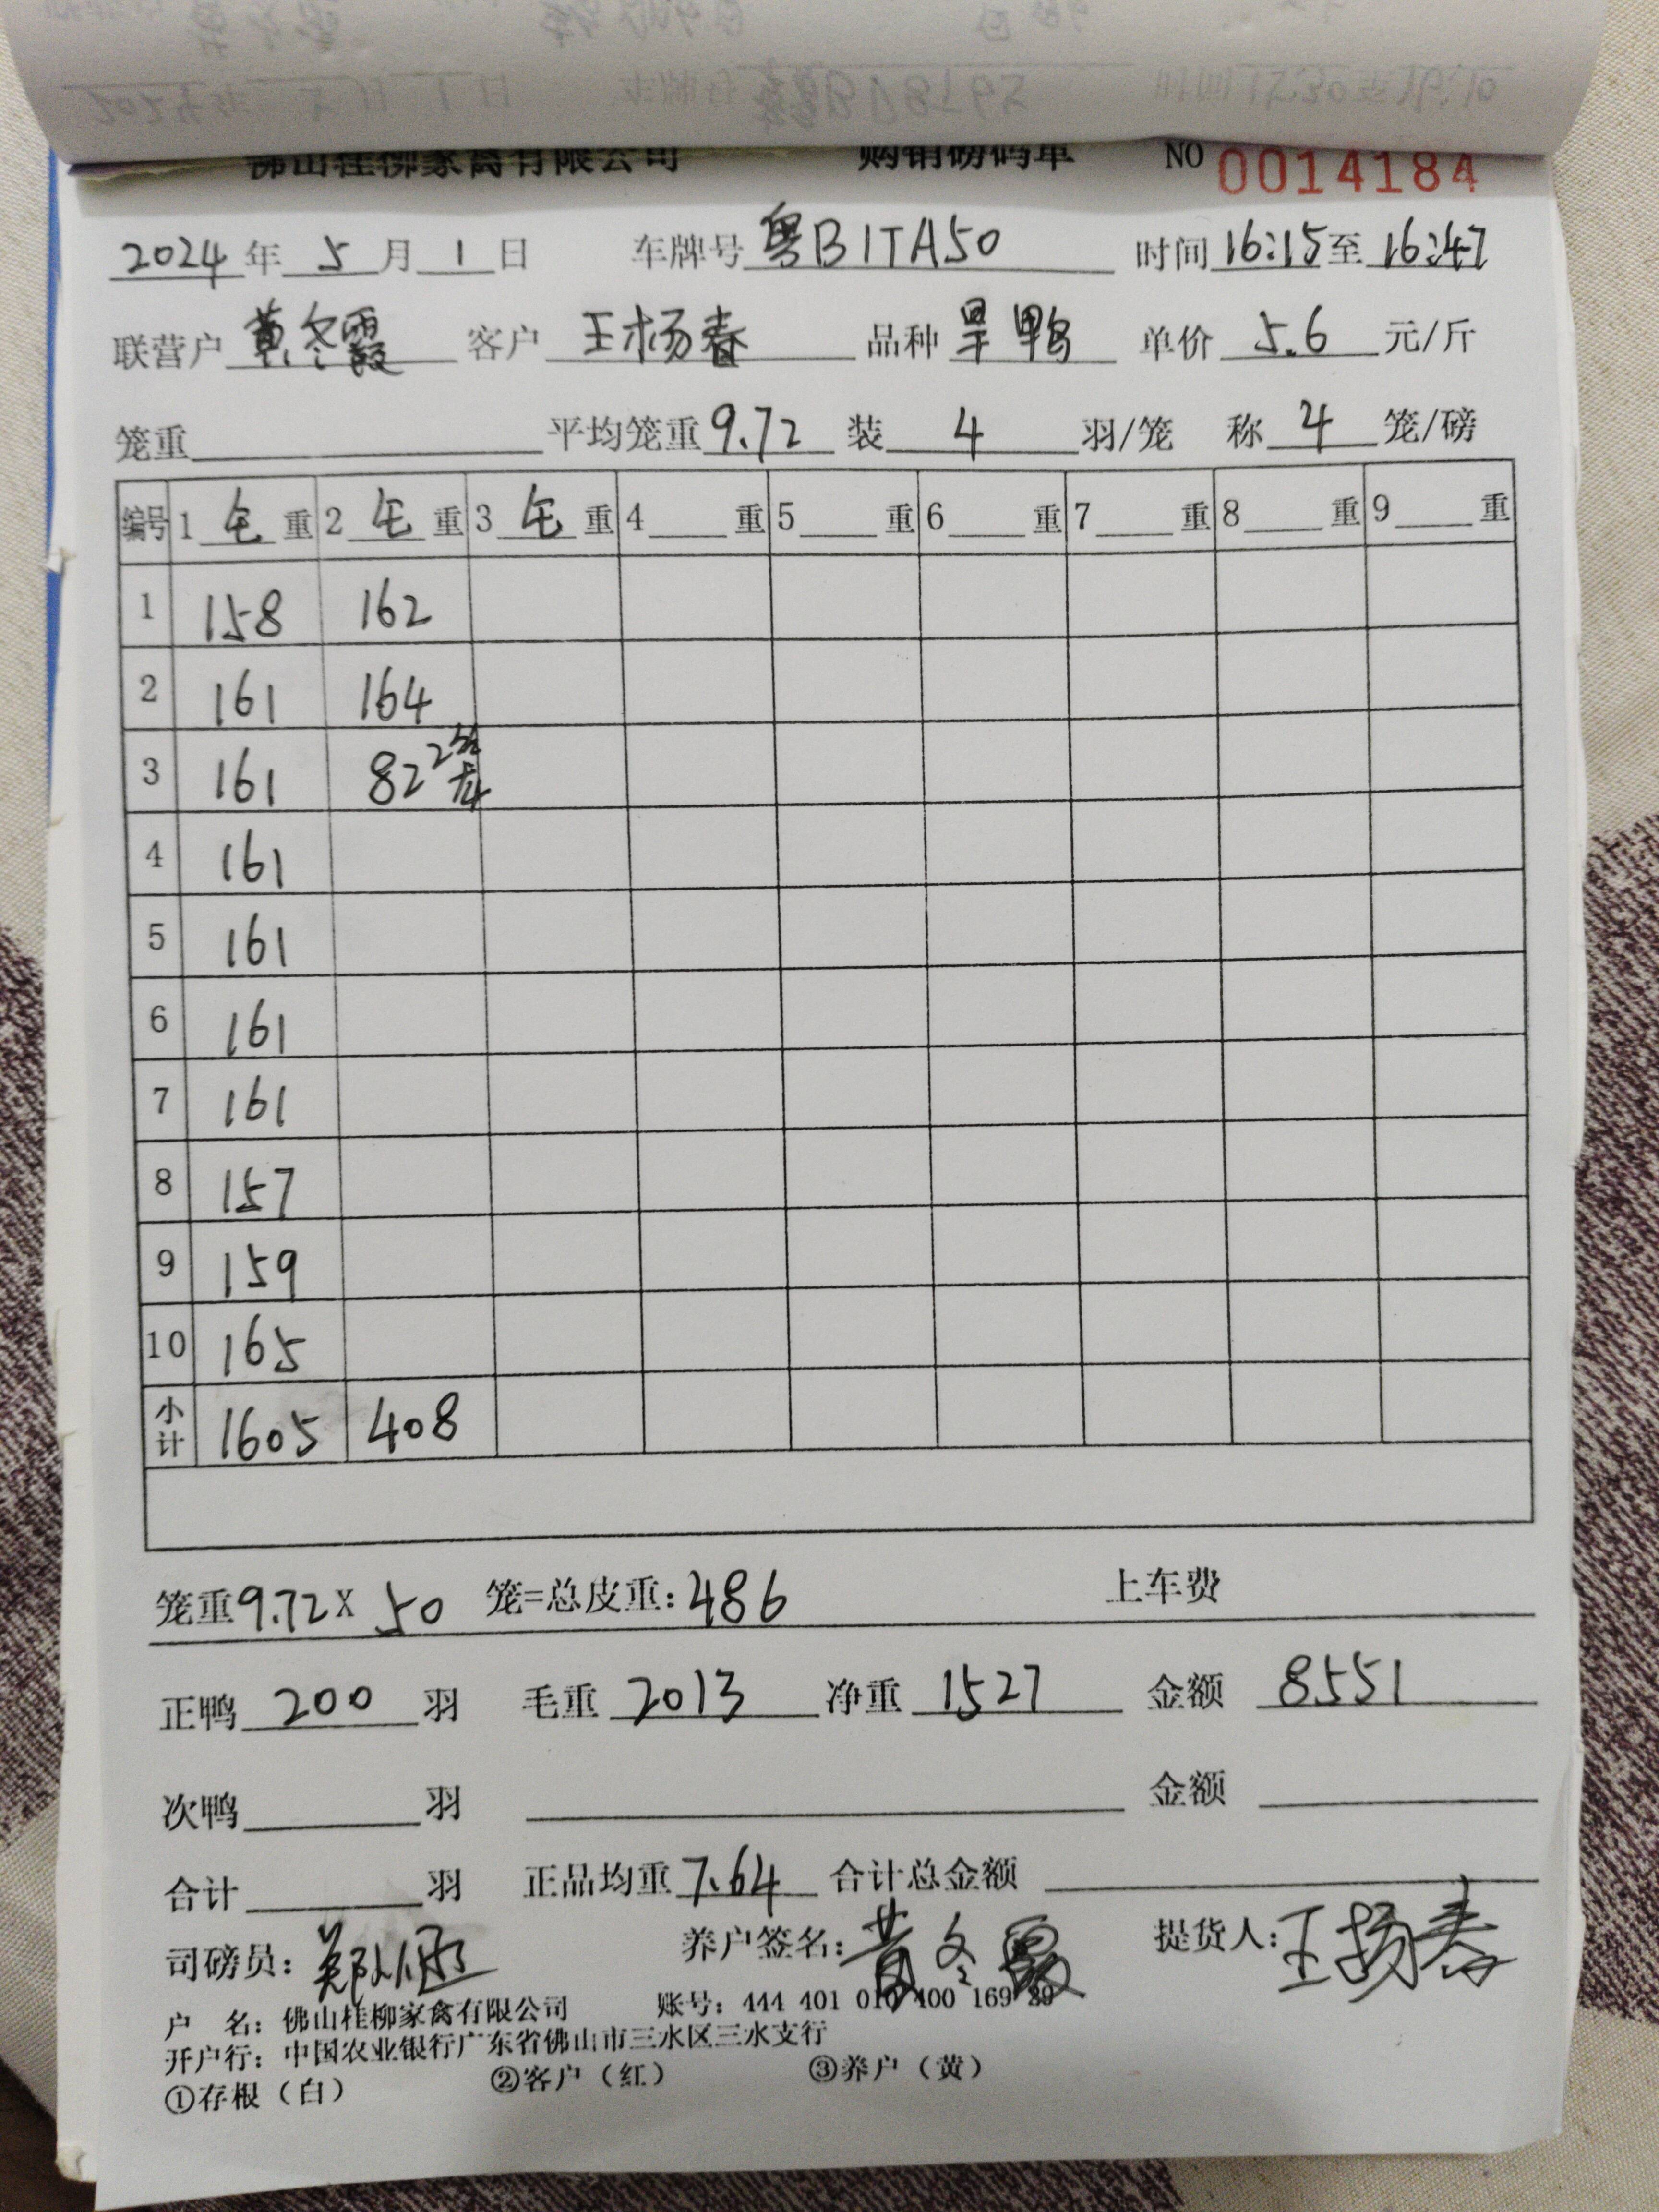 佛山桂柳家禽有限公司 购销磅码单 NO 0014184
2024年5月1日 车牌号 粤B1TA50 时间 16:15至16:47
联营户 黄冬霞 客户 王杨春 品种 旱鸭 单价 5.6 元/斤
笼重 平均笼重 9.72 装 4 羽/笼 称 4 笼/磅
编号 1 毛 重 2 毛 重 3 毛 重 4 重 5 重 6 重 7 重 8 重 9 重
1 158 162
2 161 164
3 161 82 2笼
4 161
5 161
6 161
7 161
8 157
9 159
10 165
小计 1605 408
笼重 9.72 X 50 笼=总皮重: 486 上车费
正鸭 200 羽 毛重 2013 净重 1527 金额 8551
次鸭 羽 金额
合计 羽 正品均重 7.64 合计总金额
司磅员: 养户签名: 黄冬霞 提货人: 王扬春
户 名: 佛山桂柳家禽有限公司 账号: 444 401 010 400 169 29
开户行: 中国农业银行广东省佛山市三水区三水支行
①存根（白） ②客户（红） ③养户（黄）